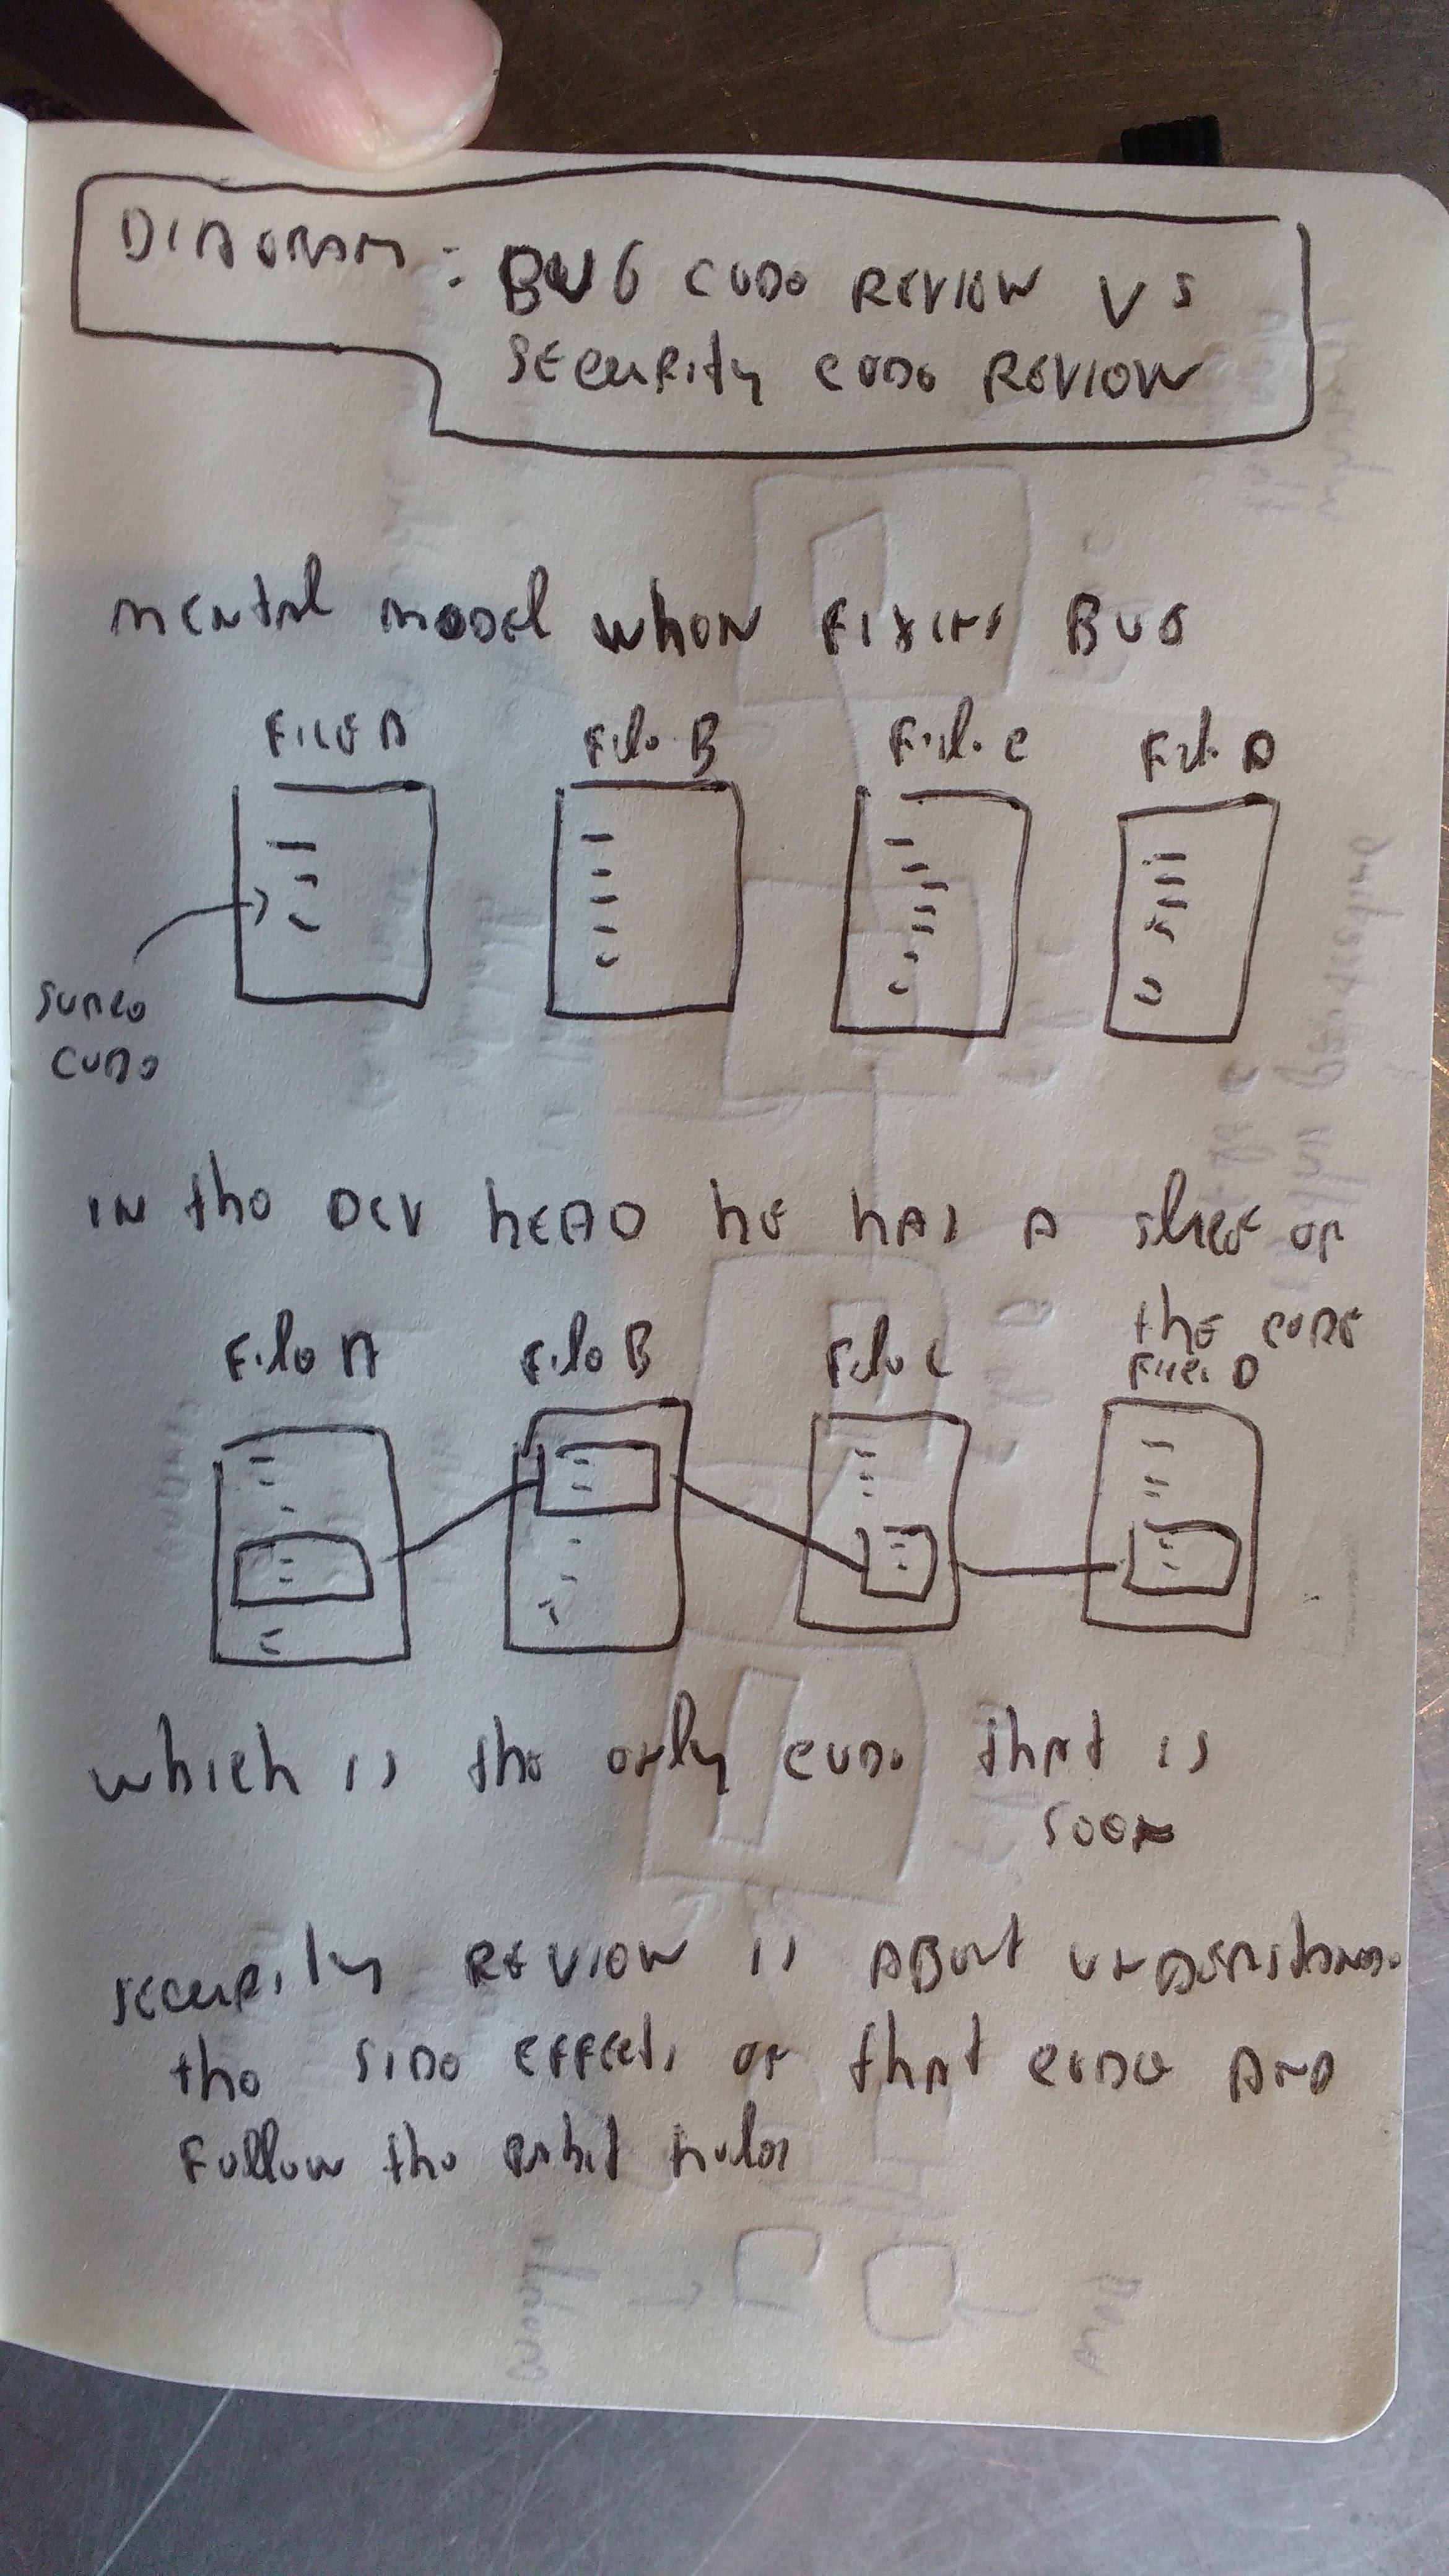 DIAGRAM: BUG CODE REVIEW VS
SECURITY CODE REVIEW
MENTAL MODEL WHEN FIXING BUG
FILE A File B File C File D
SOURCE
CODE
IN the DEV HEAD HE HAS A slice OF
the CODE
File A File B File C File D
which is the only CODE that is
SEEN
SECURITY REVIEW is ABOUT UNDERSTAND
the SIDE EFFECTS OF that CODE AND
Follow the RABBIT holes